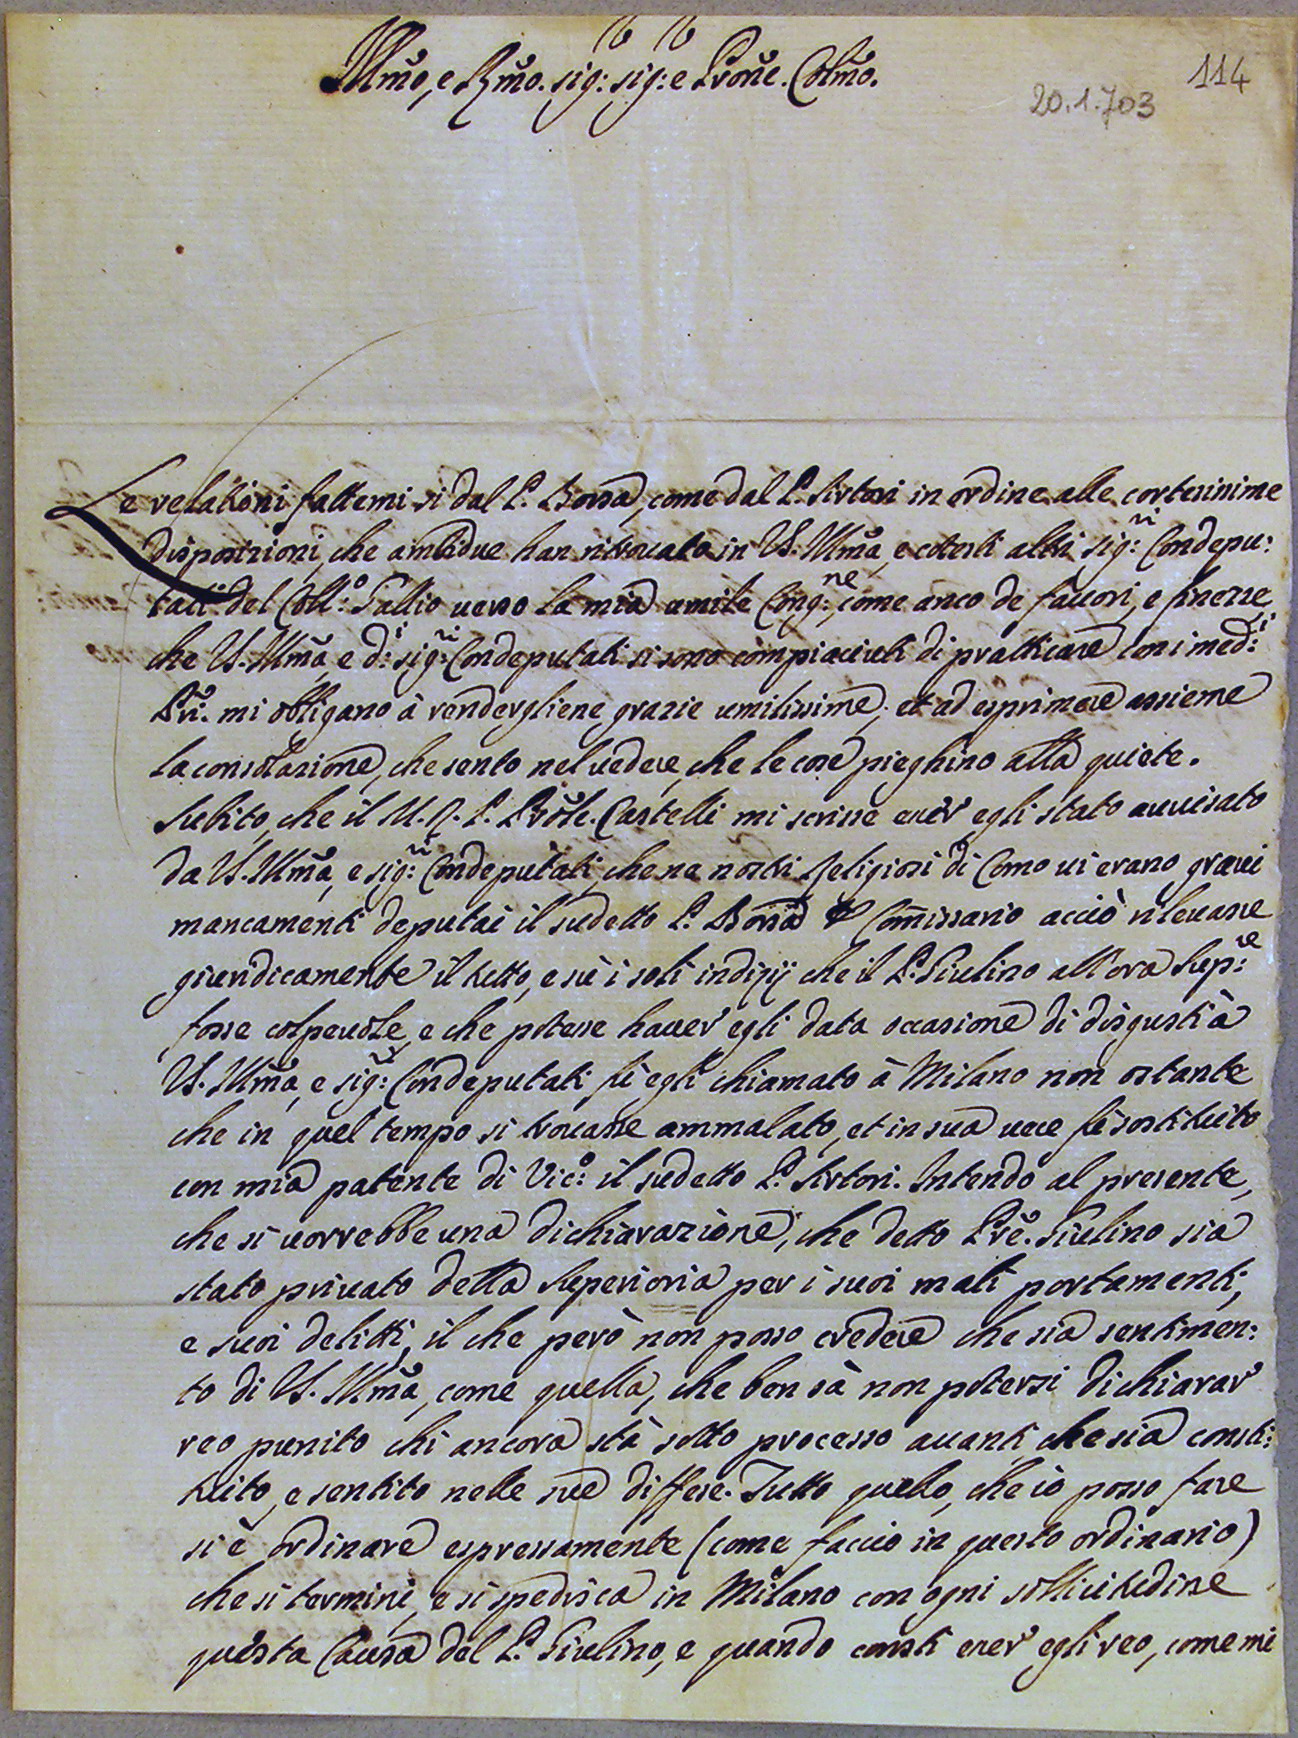 Illmo, e Rmo. sig: sig: e Prone. Colmo.
114
20.1.703
Le relationi fattemi si dal P. Borsa, come dal P. Sirtori in ordine alle cortesissime
dispositioni, che ambidue han ritrouato in V. Illma, e cotesti altri sig:ri Condepu:
tati del Coll:o Gallio uerso la mia umile Cong:ne, come anco de fauori, e finezze
che V. Illma, e d:i sig:ri Condeputati si sono compiaciuti di pratticare con i med:i
Pri. mi obligano à rendergliene grazie umilissime, et ad esprimere assieme
la consolazione, che sento nel uedere, che le cose pieghino alla quiete.
Subito, che il M. R. P. Prole. Castelli mi scrisse esser egli stato auuisato
da V. Illma, e sig:ri Condeputati, che ne nostri Religiosi di Como ui erano graui
mancamenti deputai il sudetto P. Borsa Comissario acciò rileuasse
giuridicamente il tutto, e sù i soli indizij che il P. Giulino all'ora Sup:re
fosse colpeuole, e che potesse hauer egli data occasione di disgusti à
V. Illma, e sig:ri Condeputati fù egli chiamato à Milano non ostante
che in quel tempo si trouasse ammalato, et in sua uece fù sostituito
con mia patente di Vic:o il sudetto P. Sirtori. Intendo al presente,
che si uorrebbe una dichiarazione, che detto Pre. Giulino sia
stato priuato della Superioria per i suoi mali portamenti,
e suoi delitti, il che però non posso credere che sia sentimen:
to di V. Illma, come quella, che ben sà non potersi dichiarar
reo punito chi ancora stà sotto processo auanti che sia consti:
tuito, e sentito nelle sue diffese. Tutto quello, che iò posso fare
si è ordinare espressamente (come faccio in questo ordinario)
che si termini, e si spedisca in Milano con ogni sollicitudine
questa Causa del P. Giulino, e quando consti esser egli reo, come mi